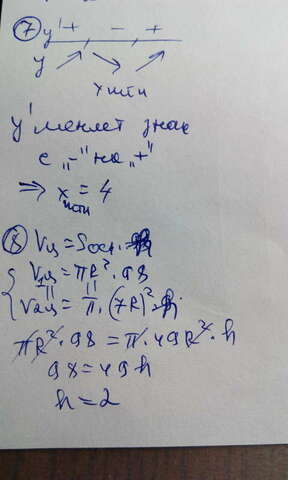 ⑦ y' + - +
y ↗ ↘ ↗
x min
y' меняет знак
с „-" на „+"
⇒ x min = 4
⑧ Vц = Sосн. h
Vц = πR² · 98
V2ц = π · (7R)² · h
πR² · 98 = π · 49R² · h
98 = 49h
h = 2